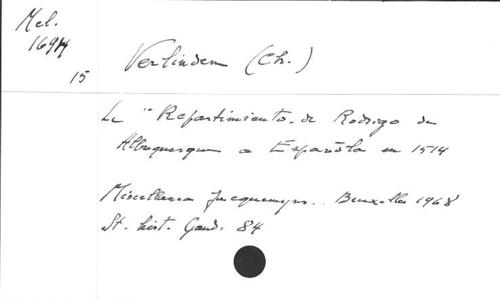 Mel.
169M
15
Verlinden (Ch.)
Le "Repartimiento. de Rodrigo de
Albuquerque a Española en 1514
Miscellanea Jacquemyns.. Bruxelles 1968
St. hist. Gand. 84